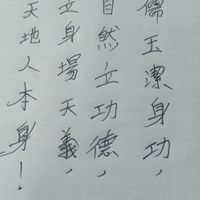 儒玉潔身功，
自然立功德，
立身場天義，
天地人本身！